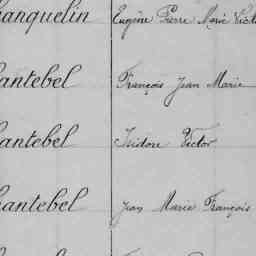 hanquelin Eugène Pierre Marie Vict
hantebel François Jean Marie
hantebel Isidore Victor
hantebel Jean Marie François